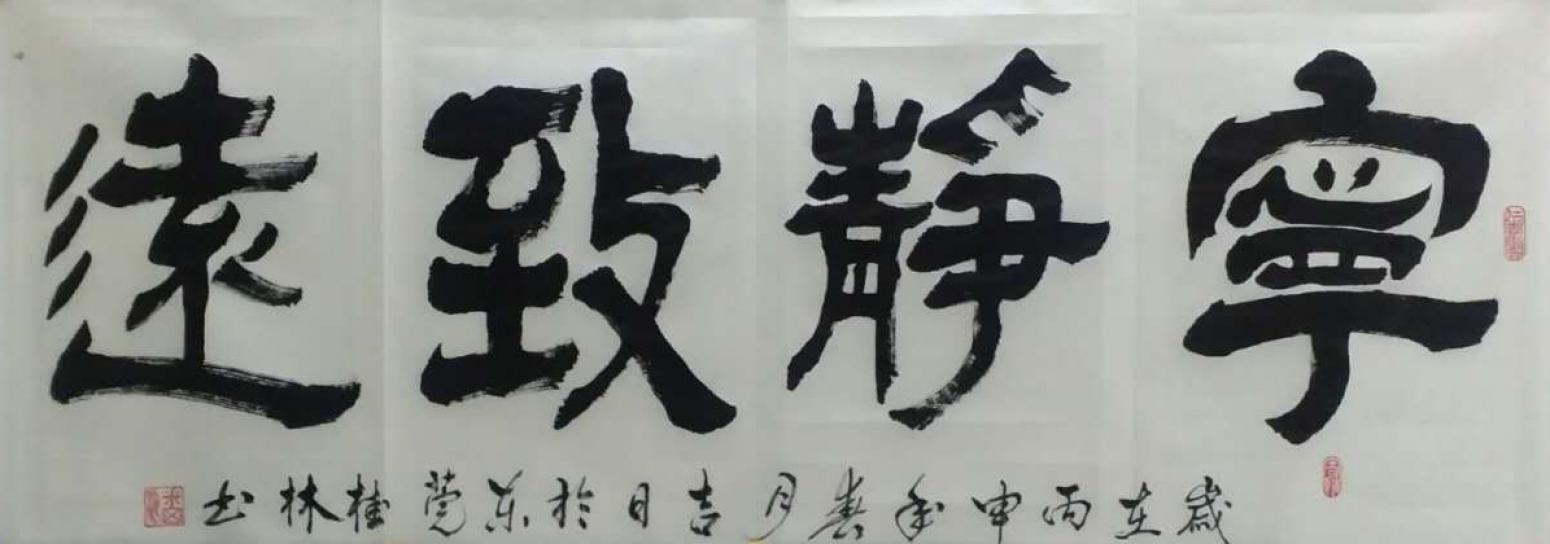 寧靜致遠
歲在丙申年春月吉日於东莞桂林书